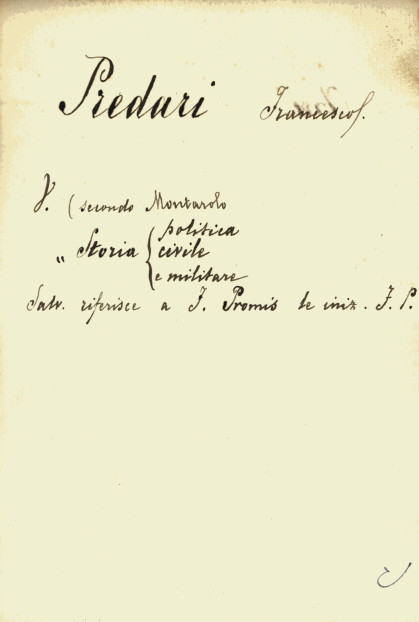 Predari Francesco
V. (secondo Montarolo
politica
„ Storia { civile
e militare
Salv. riferisce a J. Promis le iniz. J. P.